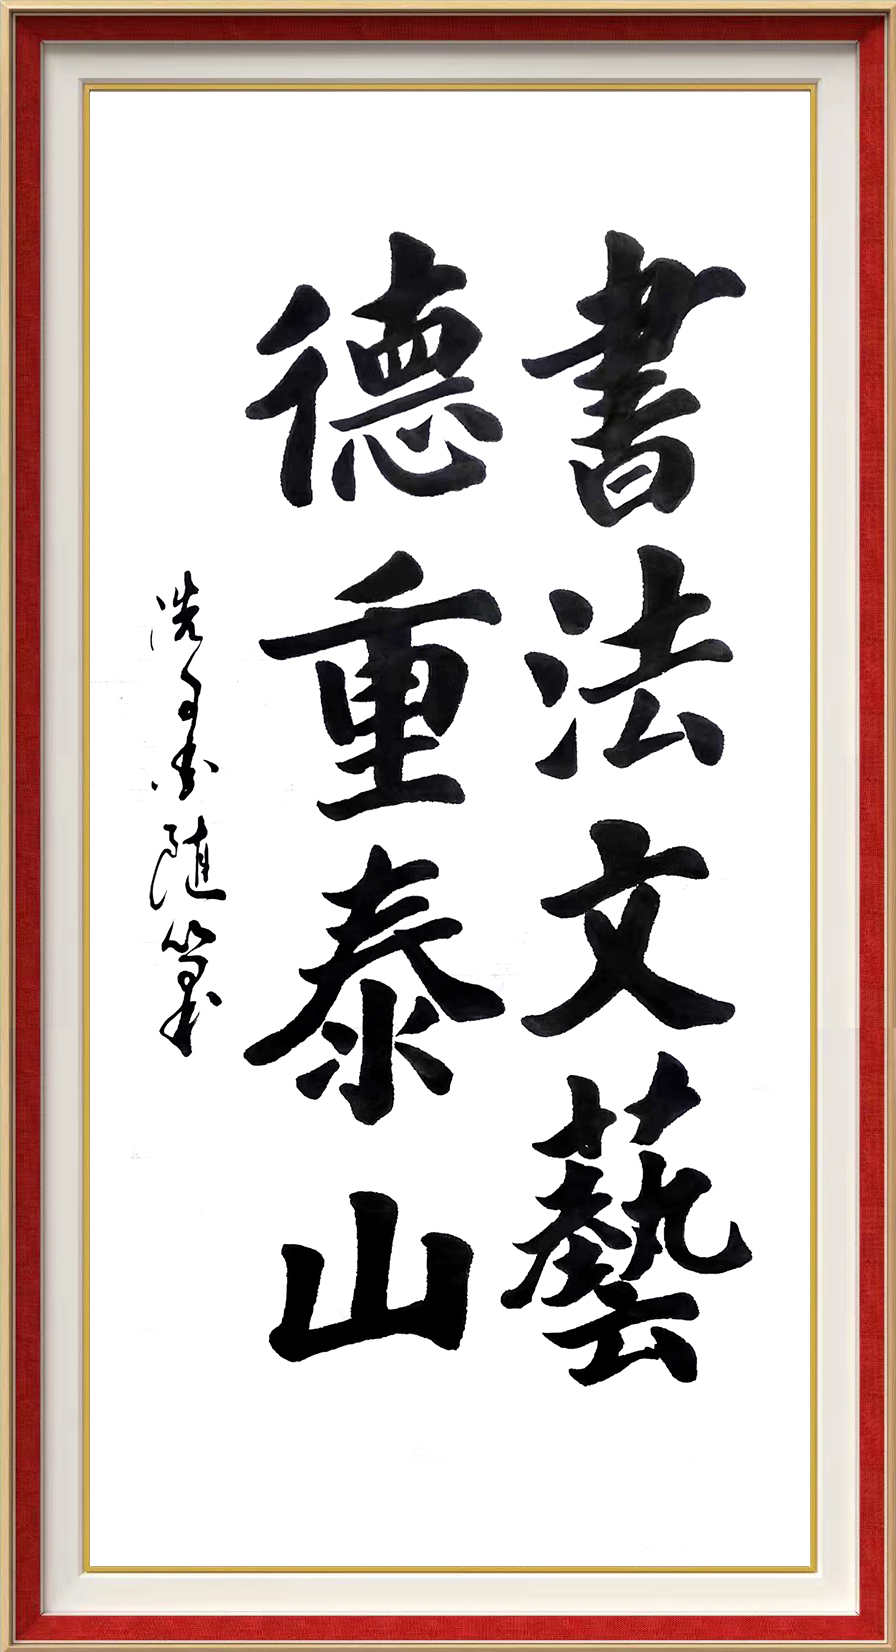 書法文藝
德重泰山
随筆